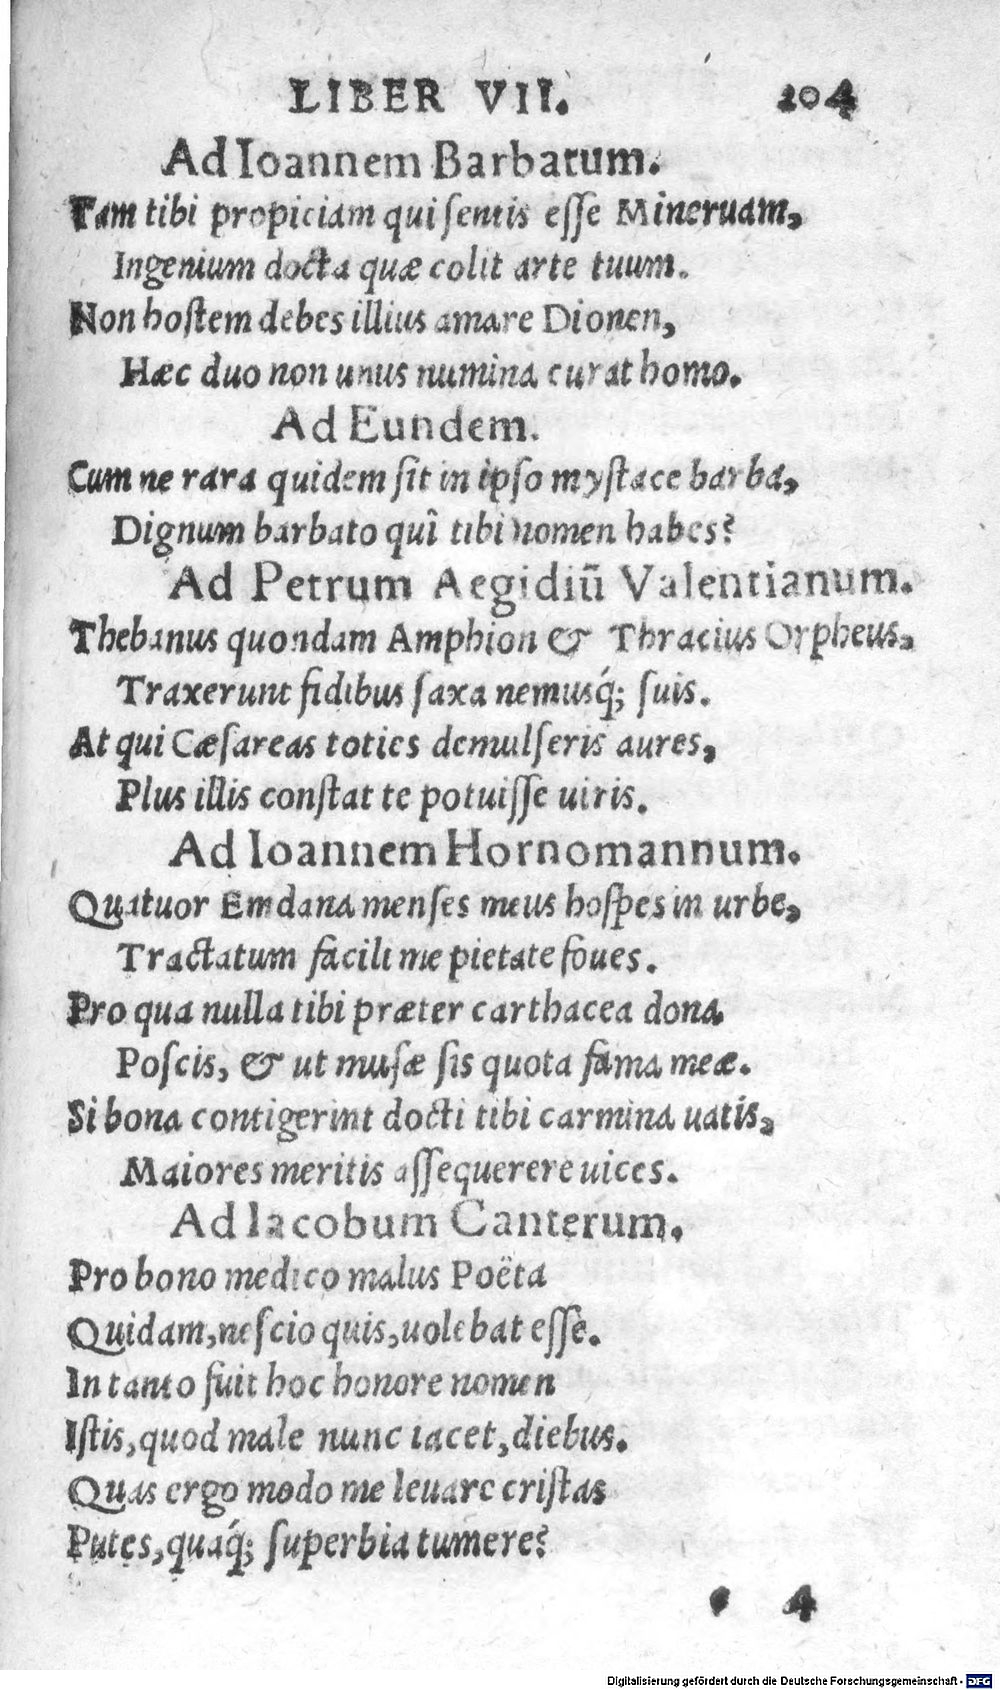 LIBER VII. 204
Ad Ioannem Barbatum.
Tam tibi propiciam qui sentis esse Mineruam,
Ingenium docta quæ colit arte tuum.
Non hostem debes illius amare Dionen,
Hæc duo non unus numina curat homo.
Ad Eundem.
Cum ne rara quidem sit in ipso mystace barba,
Dignum barbato quî tibi nomen habes?
Ad Petrum Aegidiū Valentianum.
Thebanus quondam Amphion & Thracius Orpheus,
Traxerunt fidibus saxa nemusq́; suis.
At qui Cæsareas toties demulseris aures,
Plus illis constat te potuisse uiris.
Ad Ioannem Hornomannum.
Quatuor Emdana menses meus hospes in urbe,
Tractatum facili me pietate foues.
Pro qua nulla tibi præter carthacea dona
Poscis, & ut musæ sis quota fama meæ.
Si bona contigerint docti tibi carmina uatis,
Maiores meritis assequerere uices.
Ad Iacobum Canterum.
Pro bono medico malus Poëta
Quidam, nescio quis, uolebat esse.
In tanto fuit hoc honore nomen
Istis, quod male nunc iacet, diebus.
Quas ergo modo me leuare cristas
Putes, quaq́; superbia tumere?
4
Digitalisierung gefördert durch die Deutsche Forschungsgemeinschaft - DFG